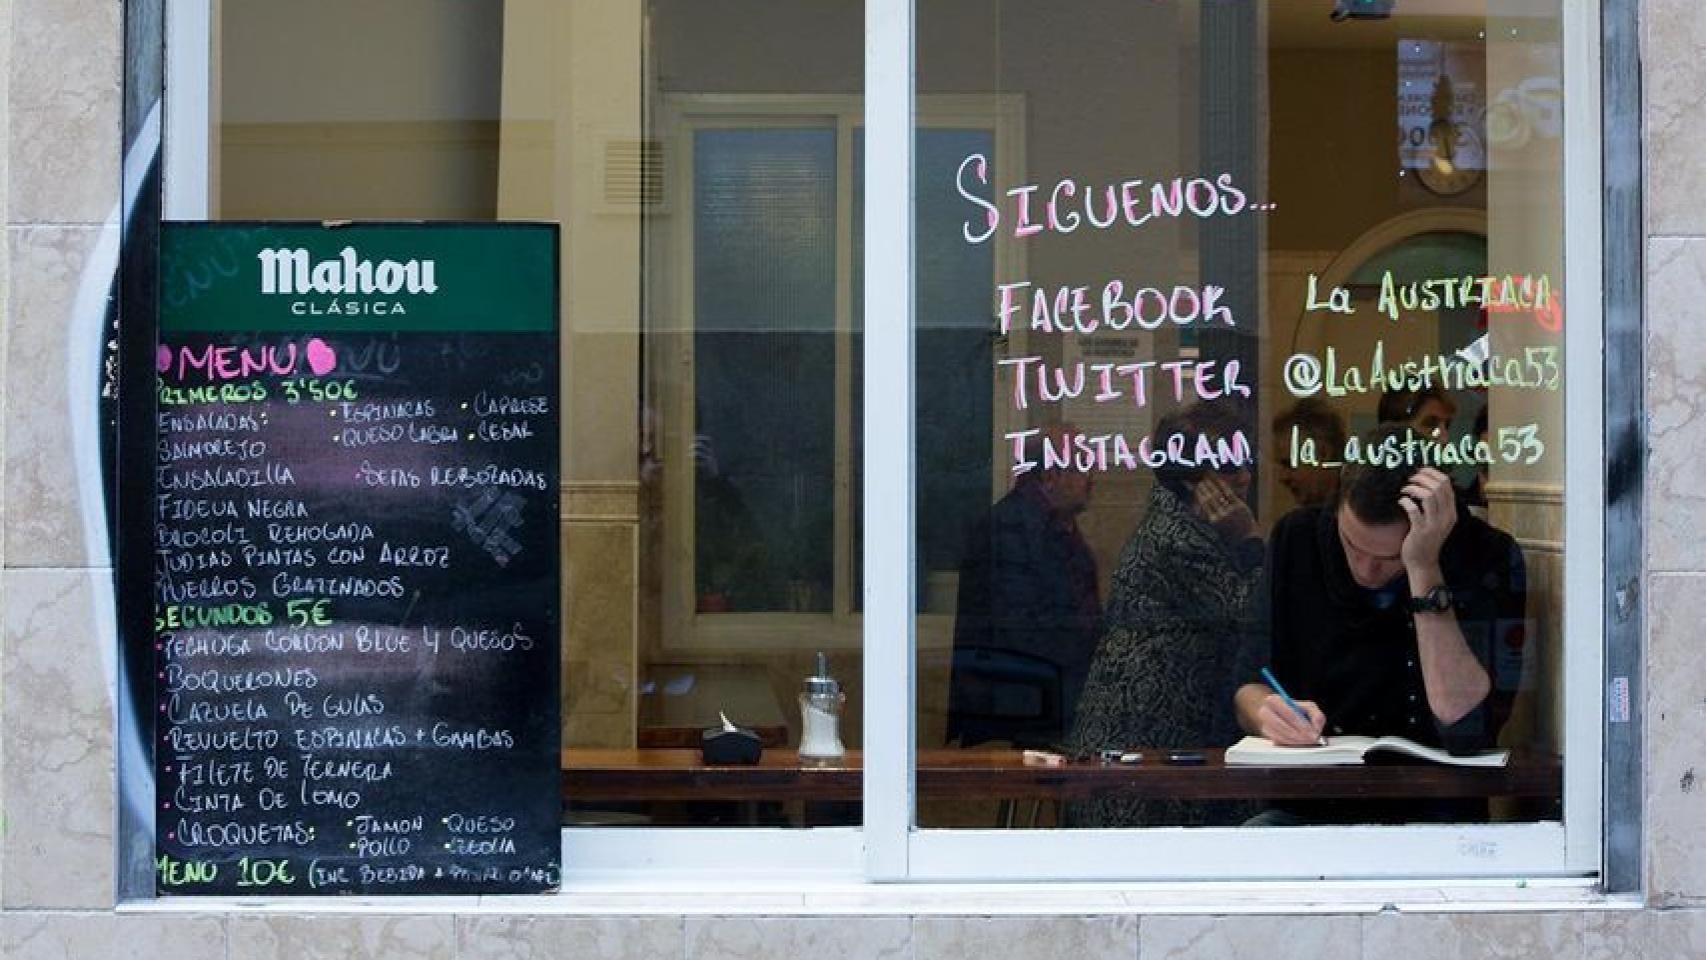 Mahou
CLÁSICA
MENU
PRIMEROS 3'50€
ENSALADAS: ·ESPINACAS ·CAPRESE
·QUESO CABRA ·CESAR
SALMOREJO
ENSALADILLA ·SETAS REBOZADAS
FIDEUA NEGRA
BROCOLI REHOGADA
JUDIAS PINTAS CON ARROZ
PUERROS GRATINADOS
SEGUNDOS 5€
·PECHUGA CORDON BLUE 4 QUESOS
·BOQUERONES
·CAZUELA DE GULAS
·REVUELTO ESPINACAS + GAMBAS
·FILETE DE TERNERA
·CINTA DE LOMO
·CROQUETAS: ·JAMON ·QUESO
·POLLO ·CECINA
MENU 10€ (INC BEBIDA + POSTRE O CAFÉ)
SIGUENOS...
FACEBOOK La AUSTRIACA
TWITTER @LaAustriaca53
INSTAGRAM la_austriaca53